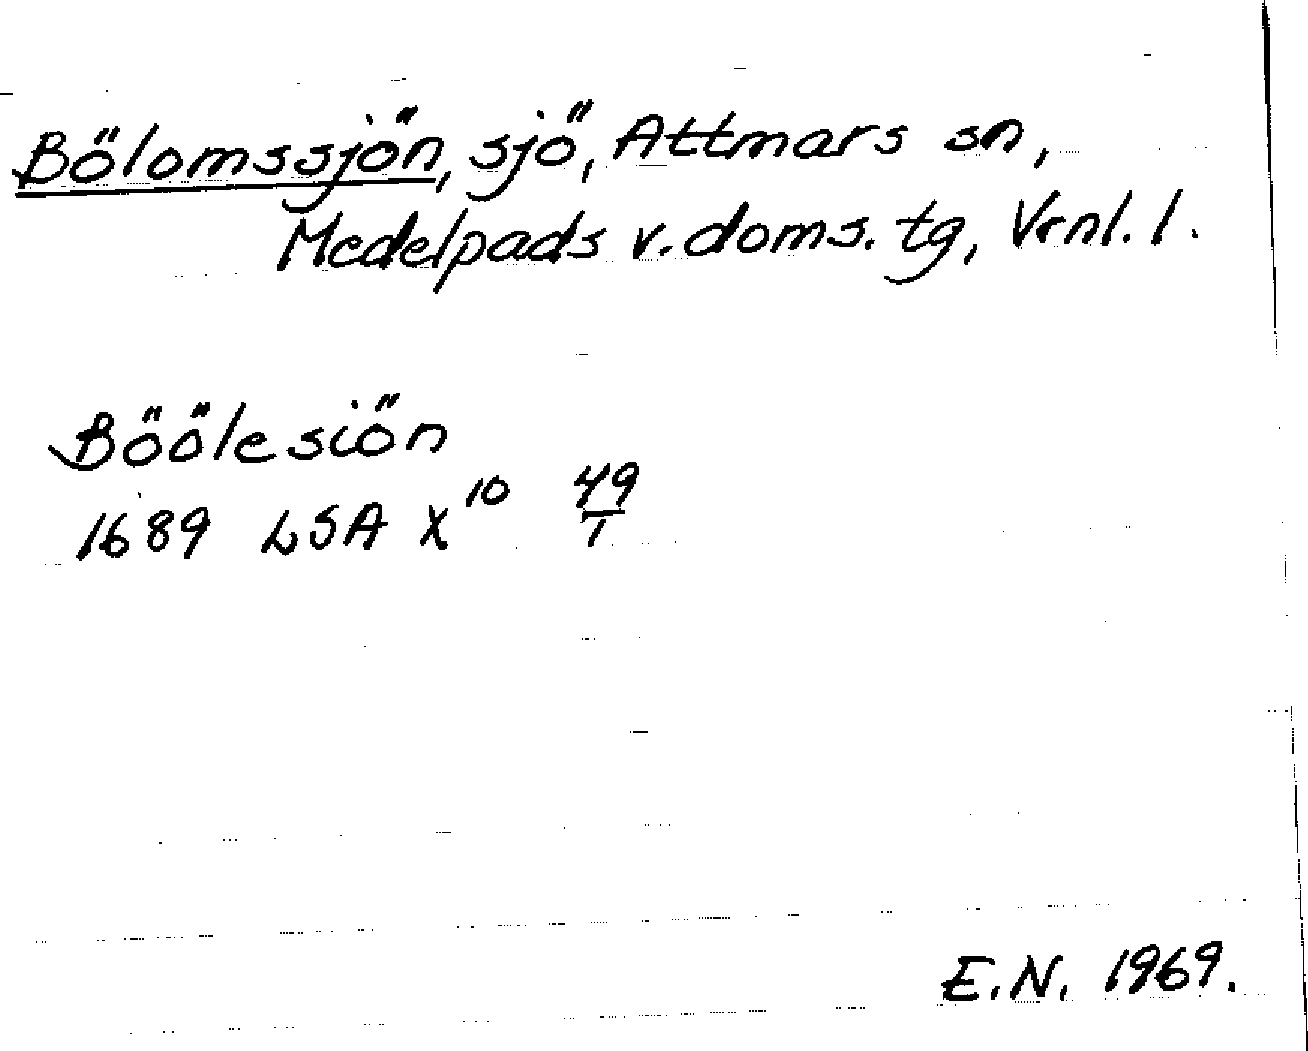 Bölomssjön, sjö, Attmars sn,
Medelpads v. doms. tg, Vrnl. l.
Böölesiön
1689 LSA X¹⁰ 49/1
E.N. 1969.